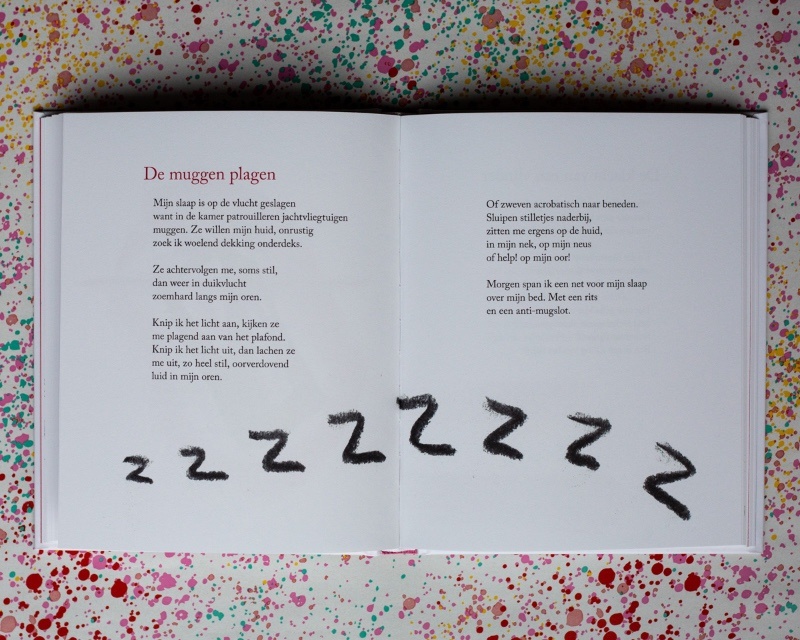 De muggen plagen
Mijn slaap is op de vlucht geslagen
want in de kamer patrouilleren jachtvliegtuigen
muggen. Ze willen mijn huid, onrustig
zoek ik woelend dekking onderdeks.
Ze achtervolgen me, soms stil,
dan weer in duikvlucht
zoemhard langs mijn oren.
Knip ik het licht aan, kijken ze
me plagend aan van het plafond.
Knip ik het licht uit, dan lachen ze
me uit, zo heel stil, oorverdovend
luid in mijn oren.
Of zweven acrobatisch naar beneden.
Sluipen stilletjes naderbij,
zitten me ergens op de huid,
in mijn nek, op mijn neus
of help! op mijn oor!
Morgen span ik een net voor mijn slaap
over mijn bed. Met een rits
en een anti-mugslot.
z z z z z z z z